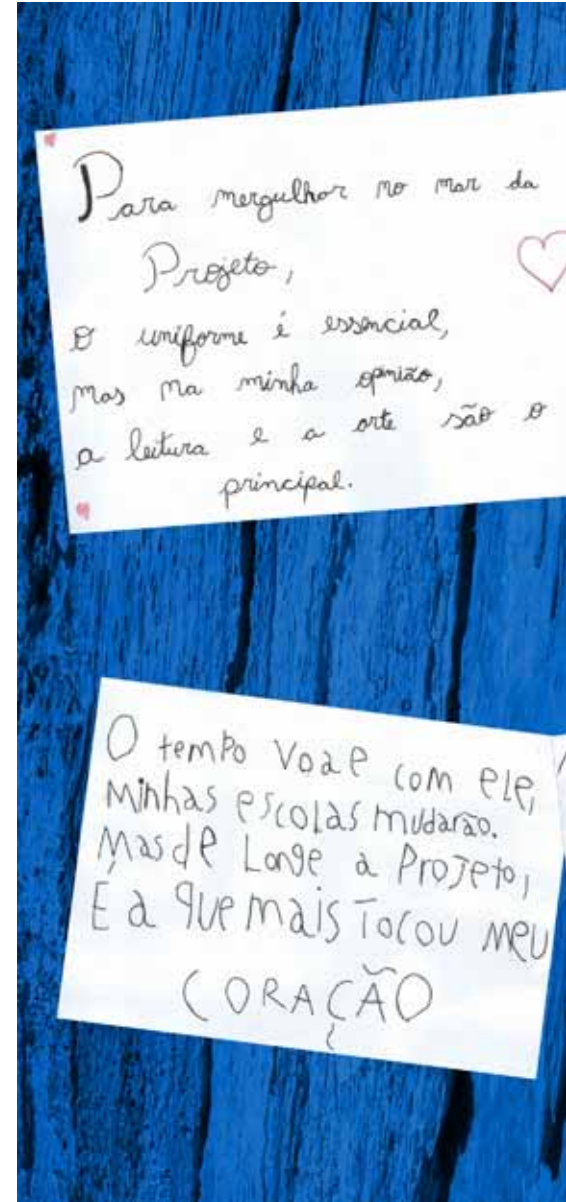 Para mergulhar no mar da
Projeto,
o uniforme é essencial,
mas na minha opnião,
a leitura e a arte são o
principal.
O temPo Voa e com ele,
Minhas escolas mudarão.
Mas de Longe a ProJeto,
E a que mais Tocou meu
CORAÇÃO